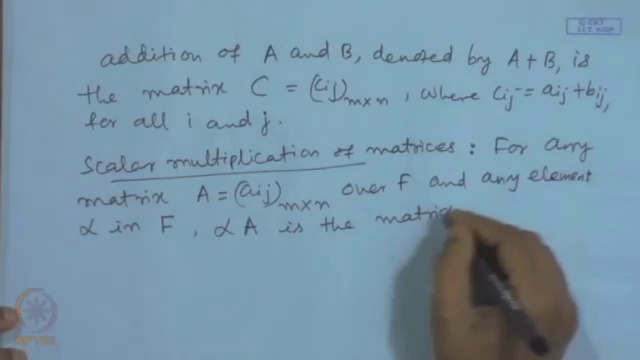 © CET
I.I.T. KGP
addition of A and B, denoted by A + B, is
the matrix C = (cij)m×n, where cij = aij + bij,
for all i and j.
Scalar multiplication of matrices: For any
matrix A = (aij)m×n over F and any element
α in F, αA is the matri
NPTEL